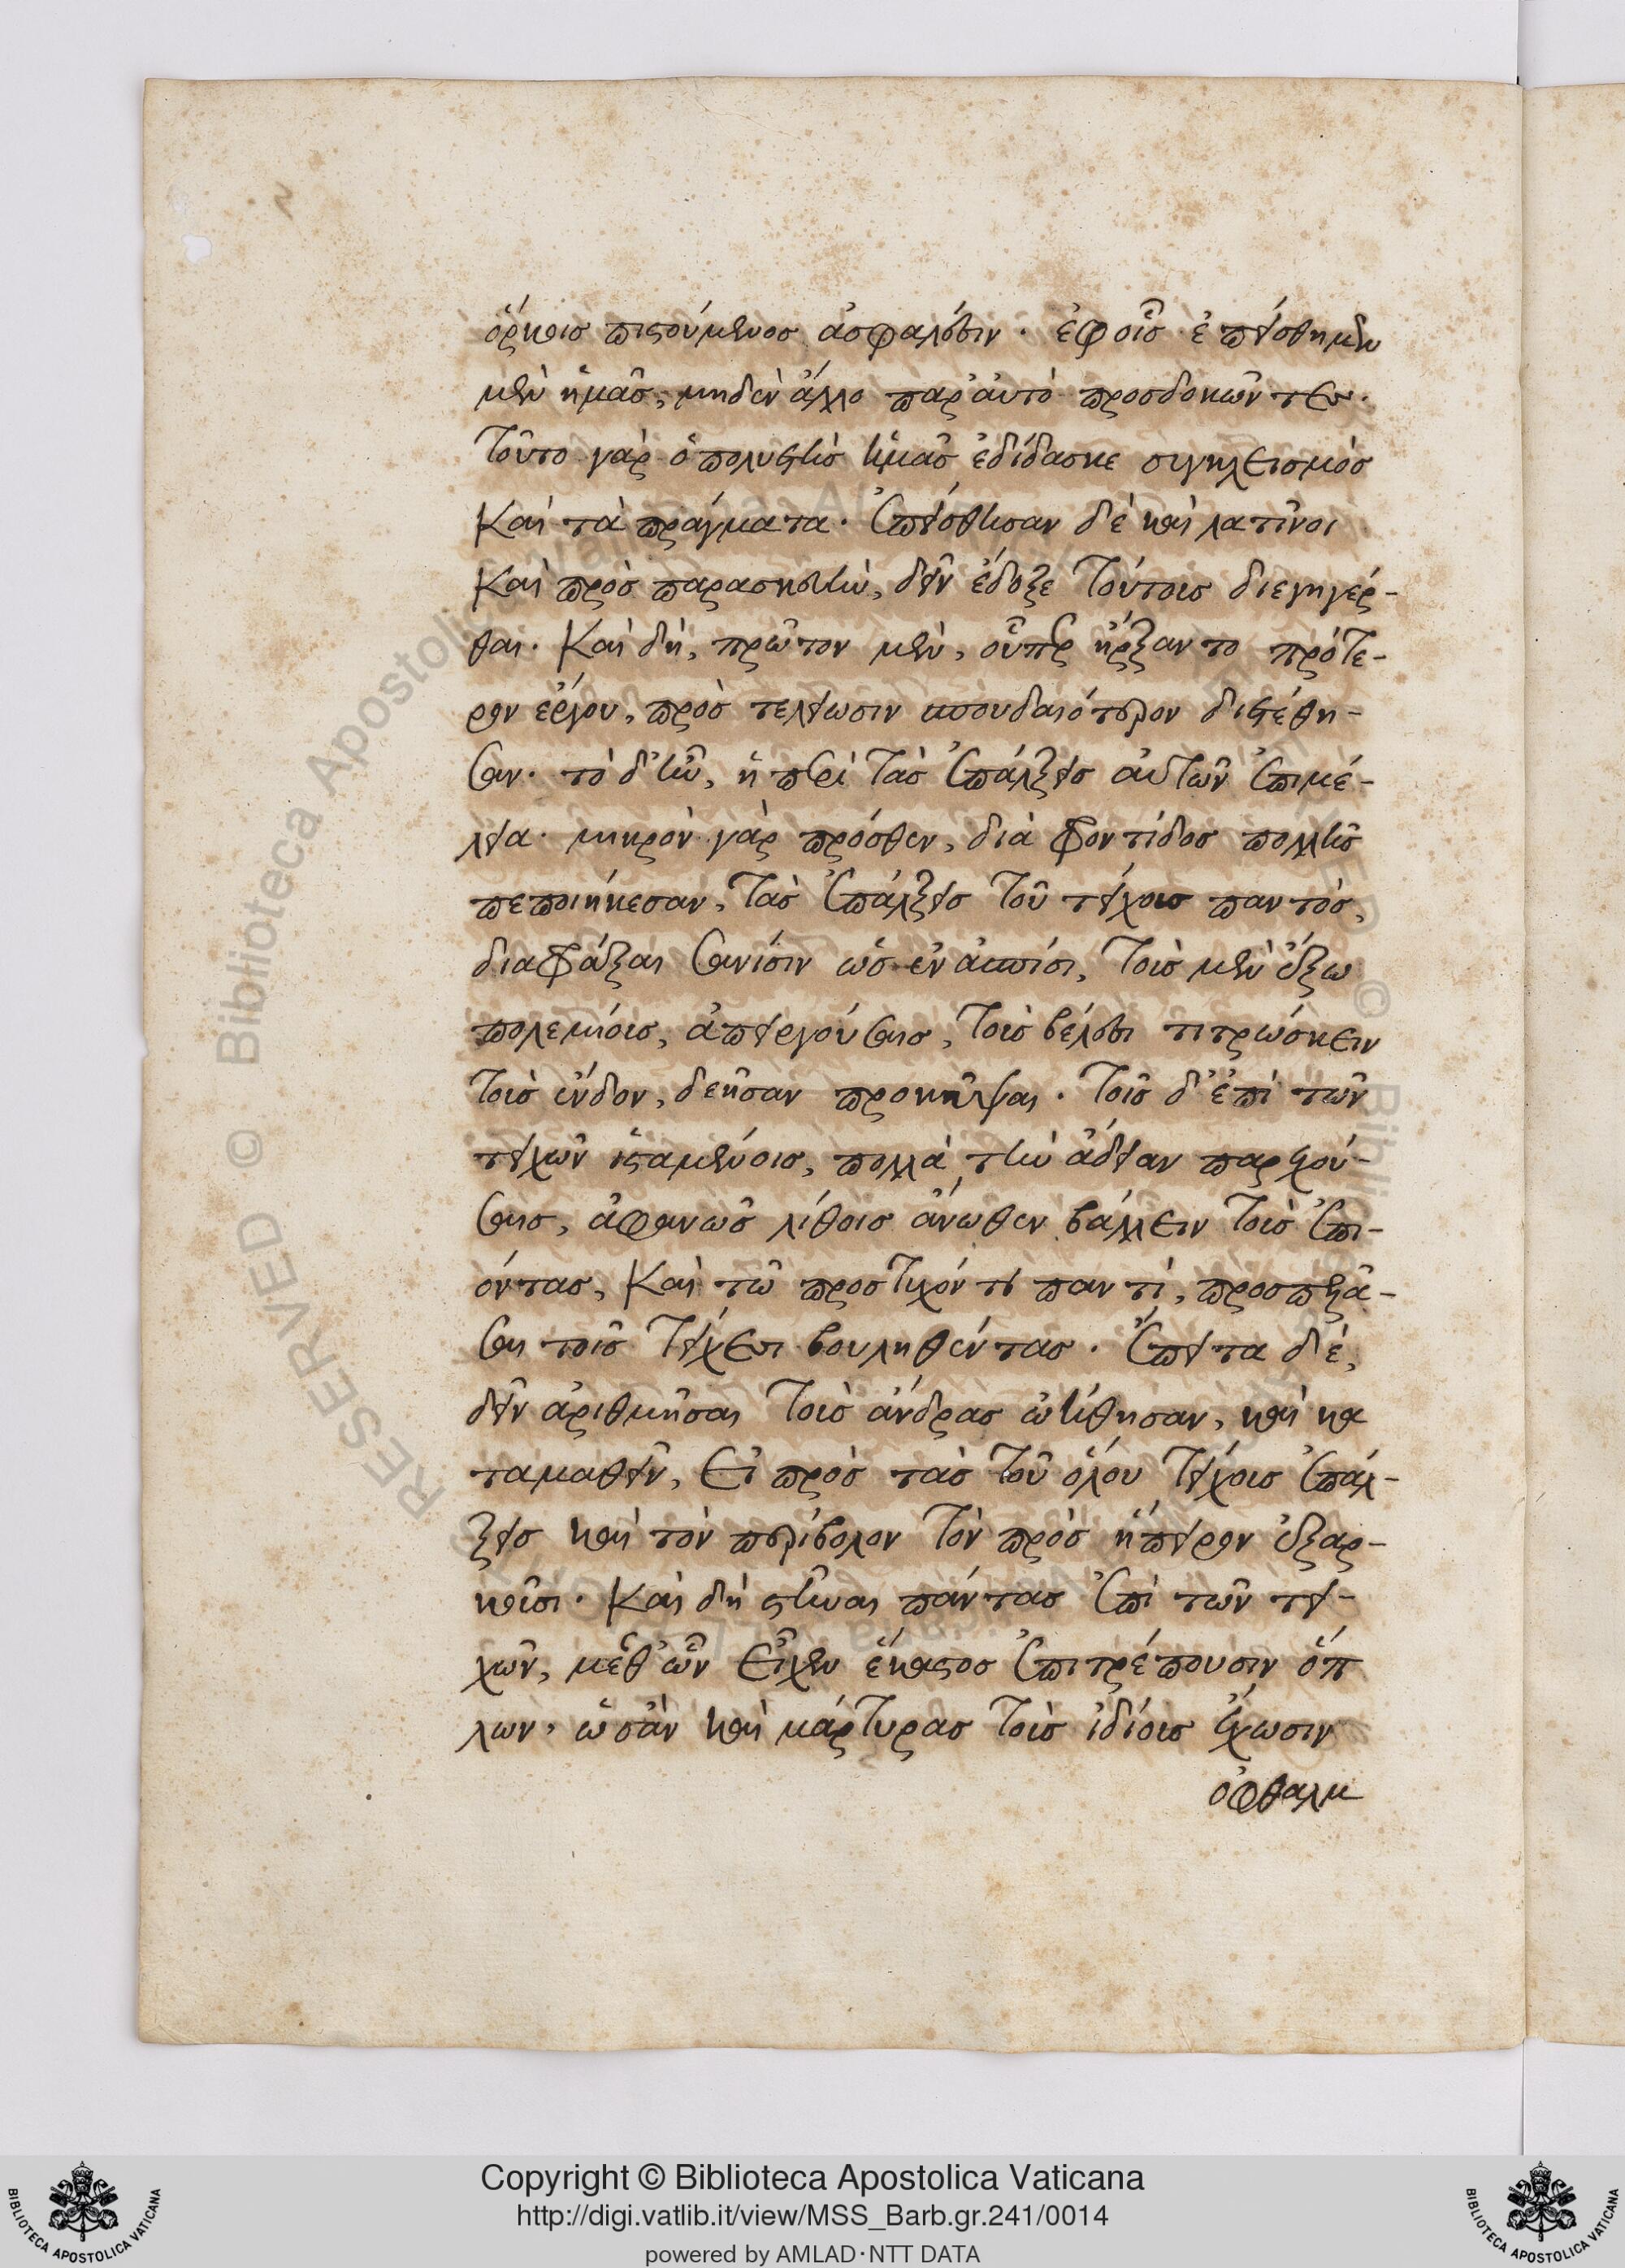 ὅρκοις πιστούμενος ἀσφαλέσιν. ἐφοῖς ἐπείσθημεν
μὲν ἡμᾶς, μηδὲν ἄλλο παρ' αὐτὸ προσδοκῶντες.
Τοῦτο γὰρ ὁ πολυετὴς ἡμᾶς ἐδίδασκε συγκλεισμὸς
Καὶ τὰ πράγματα. ἐπείσθησαν δὲ καὶ λατῖνοι
Καὶ πρὸς παρασκευὴν, δεῖν ἔδοξε τούτοις διεγηγέρ-
θαι. Καὶ δὴ, πρῶτον μὲν, οὗπερ ἤρξαντο πρότε-
ρον ἔργου, πρὸς τελείωσιν σπουδαιότερον διετέθη-
σαν. τὸ δ' ἦν, ἡ περὶ τὰς ἐπάλξεις αὐτῶν ἐπιμέ-
λεια. μικρὸν γὰρ πρόσθεν, διὰ φροντίδος πολλῆς
πεποιήκεσαν, τὰς ἐπάλξεις τοῦ τείχους παντός,
διαφράξαι σανίσιν ὡς ἐν ἀσπίσι, τοὺς μὲν ἔξω
πολεμίους, ἀπειργούσαις, τοῖς βέλεσι τιτρώσκειν
τοὺς ἔνδον, δεῆσαν προκύψαι. τοῖς δ' ἐπὶ τῶν
τειχῶν ἱσταμένοις, πολλὴν τὴν ἄδειαν παρεχού-
σαις, ἀφανῶς λίθοις ἄνωθεν βάλλειν τοὺς ἐπι-
όντας, Καὶ τῷ προστυχόντι παντὶ, προσπελά-
σαι τοῖς τείχεσι βουληθέντας. ἔπειτα δὲ,
δεῖν ἀριθμῆσαι τοὺς ἄνδρας ᾠήθησαν, καὶ κα
ταμαθεῖν, Εἰ πρὸς τὰς τοῦ ὅλου τείχους ἐπάλ-
ξεις καὶ τὸν περίβολον τὸν πρὸς ἤπειρον ἐξαρ-
κοῖσι. Καὶ δὴ στῆναι πάντας ἐπὶ τῶν τει-
χῶν, μεθ' ὧν Εἶχεν ἕκαστος ἐπιτρέπουσιν ὅπ
λων. ὡσὰν καὶ μάρτυρας τοὺς ἰδίους ἔχωσιν
ὀφθαλμ
http://digi.vatlib.it/view/MSS_Barb.gr.241/0014
Copyright © Biblioteca Apostolica Vaticana
powered by AMLAD·NTT DATA